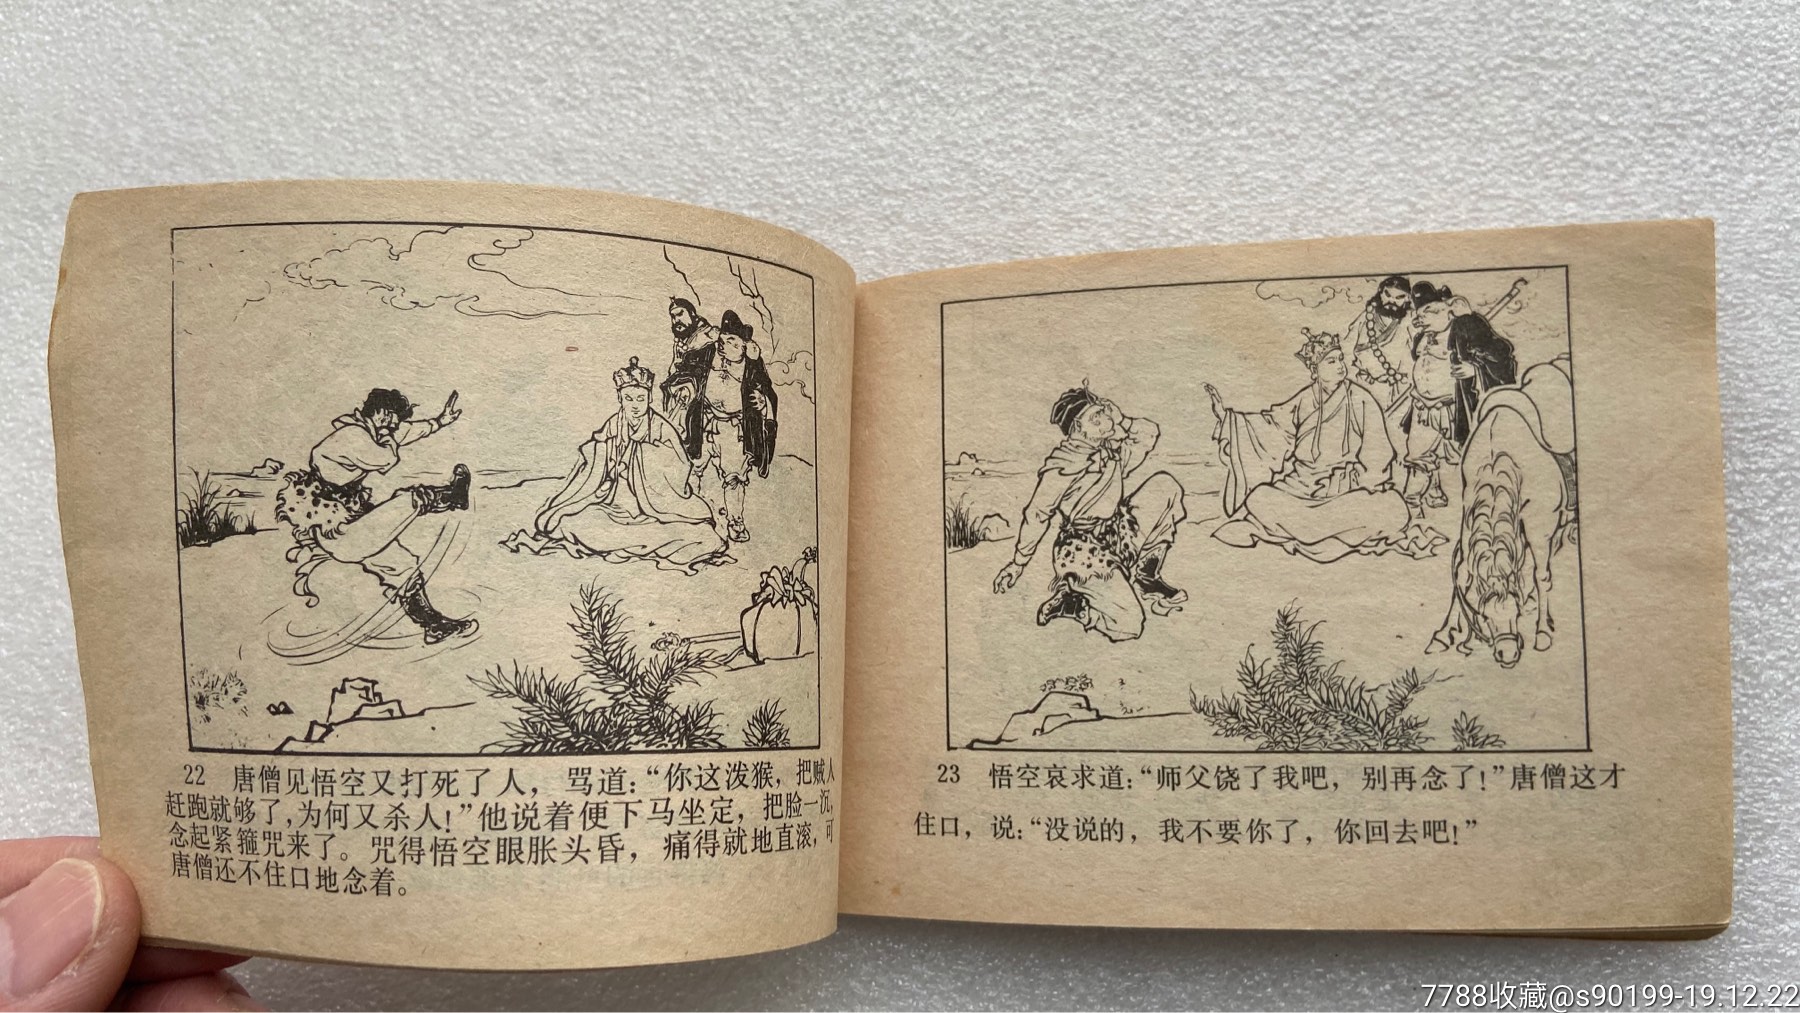 22 唐僧见悟空又打死了人，骂道：“你这泼猴，把贼人
赶跑就够了，为何又杀人！”他说着便下马坐定，把脸一沉，
念起紧箍咒来了。咒得悟空眼胀头昏，痛得就地直滚，可
唐僧还不住口地念着。
23 悟空哀求道：“师父饶了我吧，别再念了！”唐僧这才
住口，说：“没说的，我不要你了，你回去吧！”
7788收藏@s90199-19.12.22